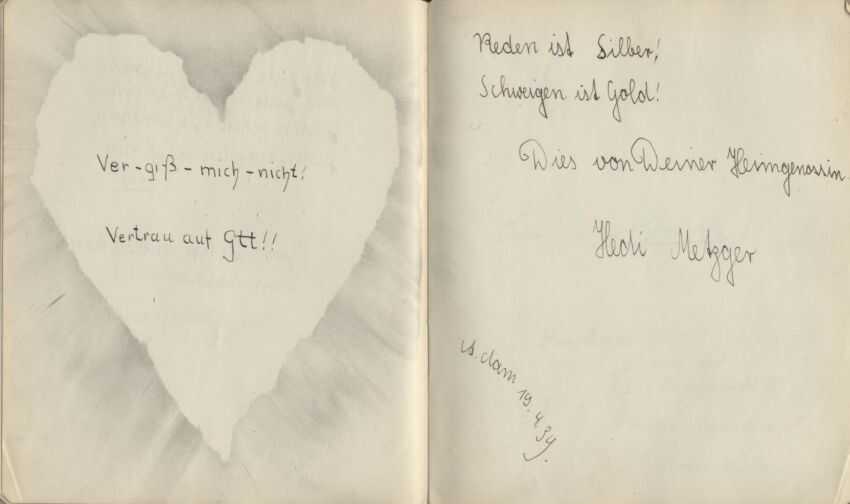 Ver-giß-mich-nicht!
Vertrau auf Gtt!!
Reden ist Silber!
Schweigen ist Gold!
Dies von Deiner Heimgenossin
Hedi Metzger
dam 19.4.34.